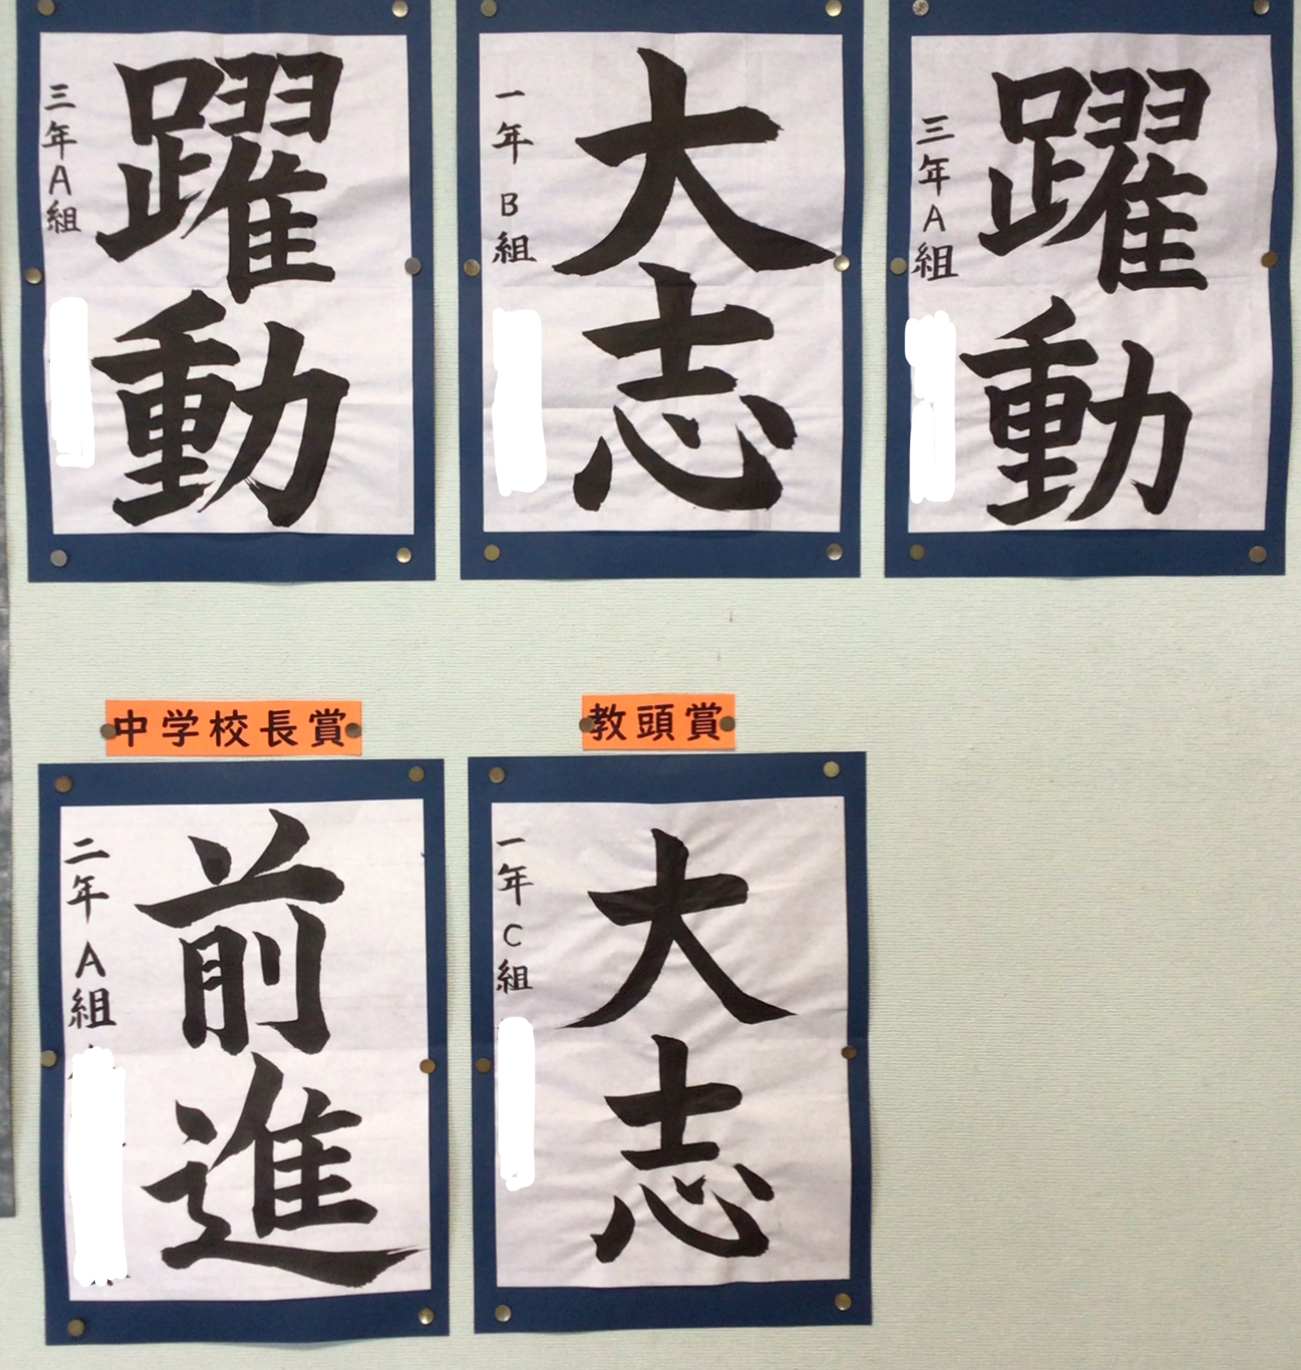 躍動
三年A組
大志
一年B組
躍動
三年A組
中学校長賞
前進
二年A組
教頭賞
大志
一年C組